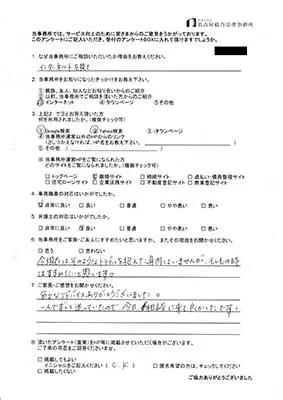 名古屋総合法律事務所
当事務所では、サービス向上のために皆さまからのご意見をうかがっております。
このアンケートにご記入いただき、受付のアンケートBOXに入れて頂けますでしょうか。
1. なぜ当事務所にご相談いただいたか理由をお教えください。
インターネットを見て
2. 当事務所をお知りになったきっかけをお教え下さい。
①親族、友人、知人などお知り合いからのご紹介
②以前、当事務所でご相談を頂いた方からのご紹介
③インターネット ④タウンページ ⑤その他
3. 上記2.で③とお答えいただいた方
何を利用されましたか。(複数チェック可)
①Google検索 ②Yahoo検索 ③iタウンページ
④当事務所運営以外のHPからのリンク
(さしつかえなければ、HP名をお教え下さい。
⑤その他(
※当事務所運営HPをご覧になられた方
どのサイトをご覧になられましたか。(複数チェック可)
□トップページ 離婚サイト □相続サイト □過払い・債務整理サイト
□住宅ローンサイト □企業法務サイト □不動産登記サイト □商業登記サイト
4. 専門職員の対応はいかがでしたか。
非常に良い □良い □普通 □やや悪い □悪い
5. 弁護士の対応はいかがでしたか。
□非常に良い 良い □普通 □やや悪い □悪い
6. 当事務所をご家族・ご友人にすすめたいと思いますか。 またその理由をお聞かせください。
□思う □思わない
今現在はそのようなトラブルを抱えて
はすすめたいと思います。
7. ご意見・ご感想をお聞かせください。
アドバイスありがとうございました。
一人でずっと迷っていたので、今日、相談に来て良かったです。
※頂いたアンケート(直筆)をHP等に掲載させていただく場合がございます。
ご了承の可否をご回答くださいませ。
□掲載してもよい
イニシャルをご記入ください( C. K ) □匿名希望の方は、チェックしてください
□掲載したくない
ご協力ありがとうございました